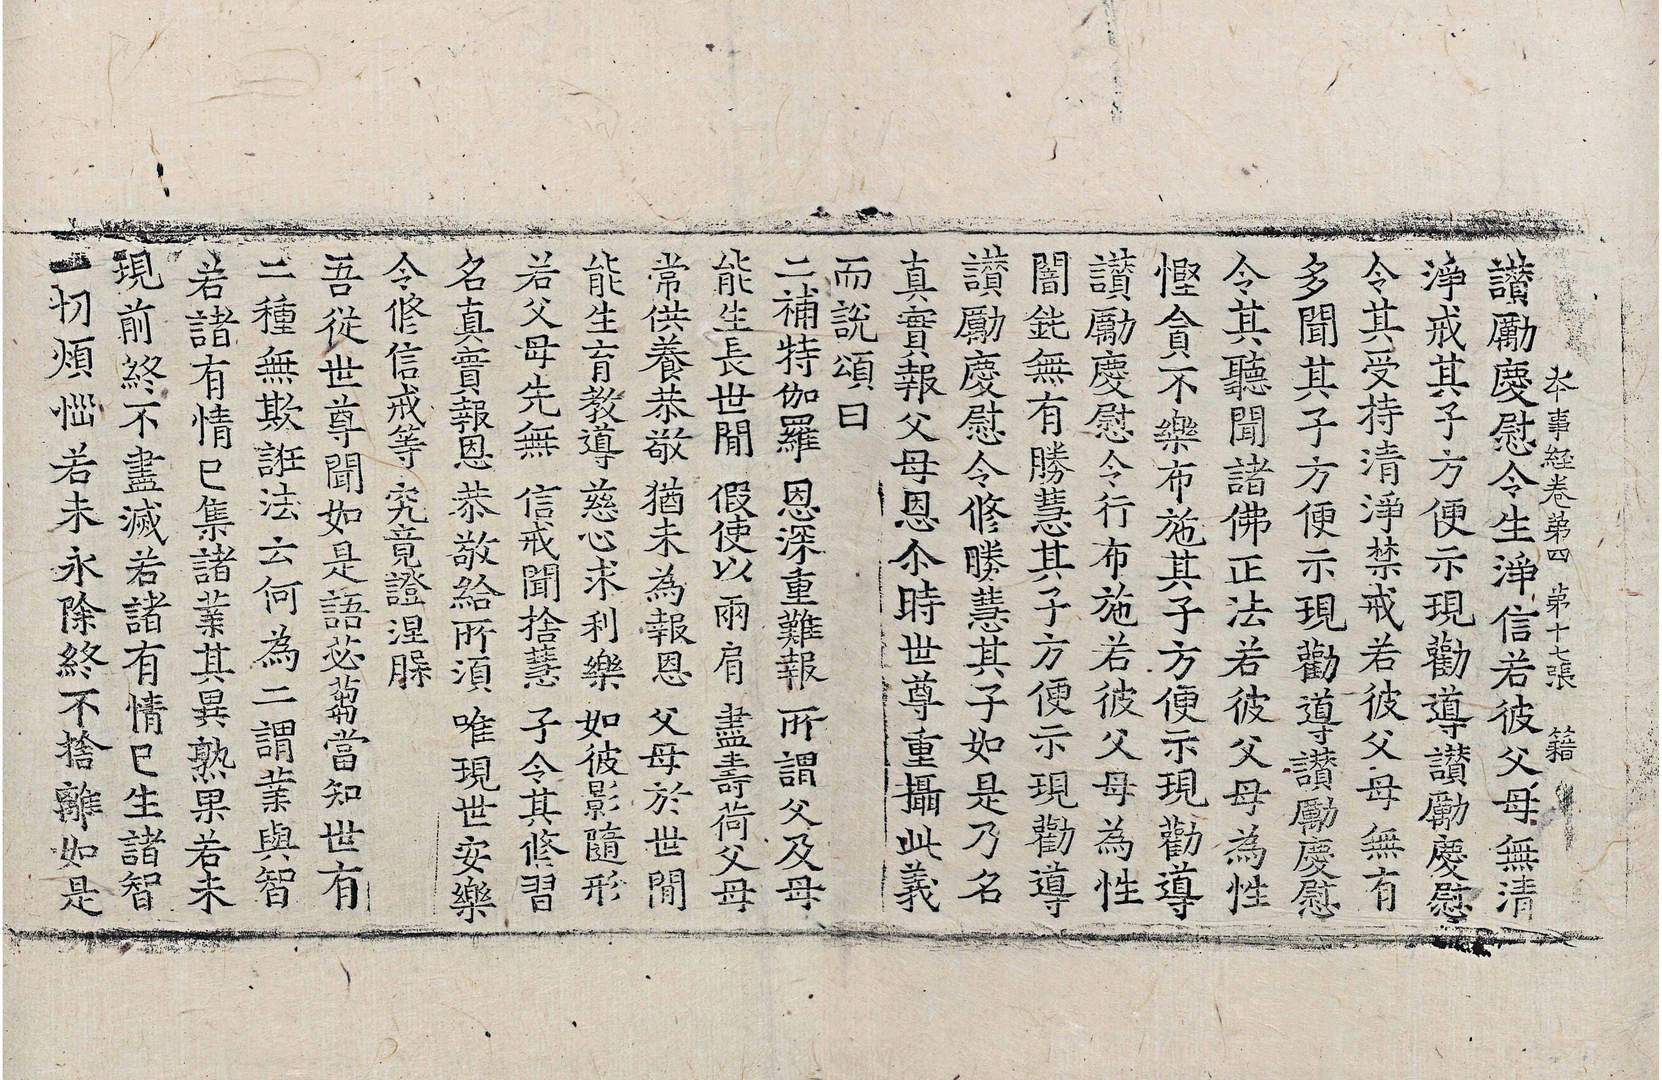 本事経卷第四 第十七張 籍
讃勵慶慰令生淨信若彼父母無清
淨戒其子方便示現勸導讃勵慶慰
令其受持清淨禁戒若彼父母無有
多聞其子方便示現勸導讃勵慶慰
令其聽聞諸佛正法若彼父母為性
慳貪不樂布施其子方便示現勸導
讃勵慶慰令行布施若彼父母為性
闇鈍無有勝慧其子方便示現勸導
讃勵慶慰令修勝慧其子如是乃名
真實報父母恩尒時世尊重攝此義
而說頌曰
二補特伽羅 恩深重難報 所謂父及母
能生長世閒 假使以兩肩 盡壽荷父母
常供養恭敬 猶未為報恩 父母於世閒
能生育教導 慈心求利樂 如彼影隨形
若父母先無 信戒聞捨慧 子令其修習
名真實報恩 恭敬給所須 唯現世安樂
令修信戒等 究竟證涅槃
吾從世尊聞如是語苾蒭當知世有
二種無欺誑法云何為二謂業與智
若諸有情已集諸業其異熟果若未
現前終不盡滅若諸有情已生諸智
一切煩惱若未永除終不捨離如是